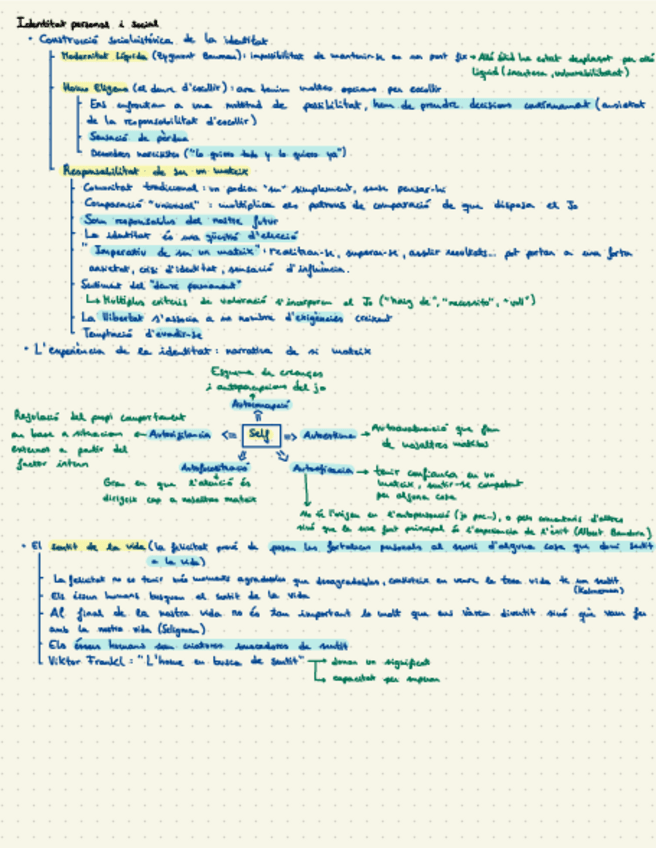 Identitat personal i social
• Construcció sociohistórica de la identitat
Modernitat Líquida (Zygmunt Bauman): impossibilitat de mantenir-se en un punt fix → Allò sòlid ha estat desplaçat per allò
líquid (incertesa, vulnerabilitat)
Homo Eligens (el deure d'escollir): ara tenim moltes opcions per escollir
Ens enfrontem a una multitud de possibilitat, hem de prendre decisions contínuament (ansietat
de la responsabilitat d'escollir)
Sensació de pèrdua
Desordres narcisistes ("lo quiero todo y lo quiero ya")
Responsabilitat de ser un mateix
Comunitat tradicional: un podia "ser" simplement, sense pensar-hi
Comparació "universal": multiplica els patrons de comparació de que disposa el Jo
Som responsables del nostre futur
La identitat és una qüestió d'elecció
"Imperatiu de ser un mateix": realitzar-se, superar-se, assolir resultats... pot portar a una forta
ansietat, crisi d'identitat, sensació d'influència.
Sentiment del "deure permanent"
↳ Múltiples criteris de valoració s'incorporen al Jo ("haig de", "necessito", "vull")
La llibertat s'associa a un nombre d'exigències creixent
Temptació d'evadir-se
• L'experiència de la identitat: narrativa de si mateix
Esquema de creences
i autopercepcions del jo
Autoconcepció
Regulació del propi comportament
en base a situacions ← Autovigilància <= Self => Autoestima → Autoavaluació que fem
externes a partir del
de nosaltres mateixos
factor intern
Autofocalització
Autoeficàcia → tenir confiança en un
Grau en que l'atenció és
mateix, sentir-se competent
dirigeix cap a nosaltres mateix
per alguna cosa
No té l'origen en l'autopersuasió (jo puc...), o pels comentaris d'altres
sinó que la seva font principal és l'experiència de l'èxit (Albert Bandura)
• El sentit de la vida (la felicitat prové de posar les fortaleses personals al servei d'alguna cosa que doni sentit
a la vida)
La felicitat no es tenir més moments agradables que desagradables, consisteix en veure la teva vida té un sentit
(Kahneman)
Els éssers humans busquem el sentit de la vida
Al final de la nostra vida no és tan important lo molt que ens vàrem divertir sinó què vam fer
amb la nostra vida (Seligman)
Els éssers humans som criatures buscadores de sentit
Viktor Frankl: "L'home en busca de sentit" → donar un significat
↳ capacitat per superar